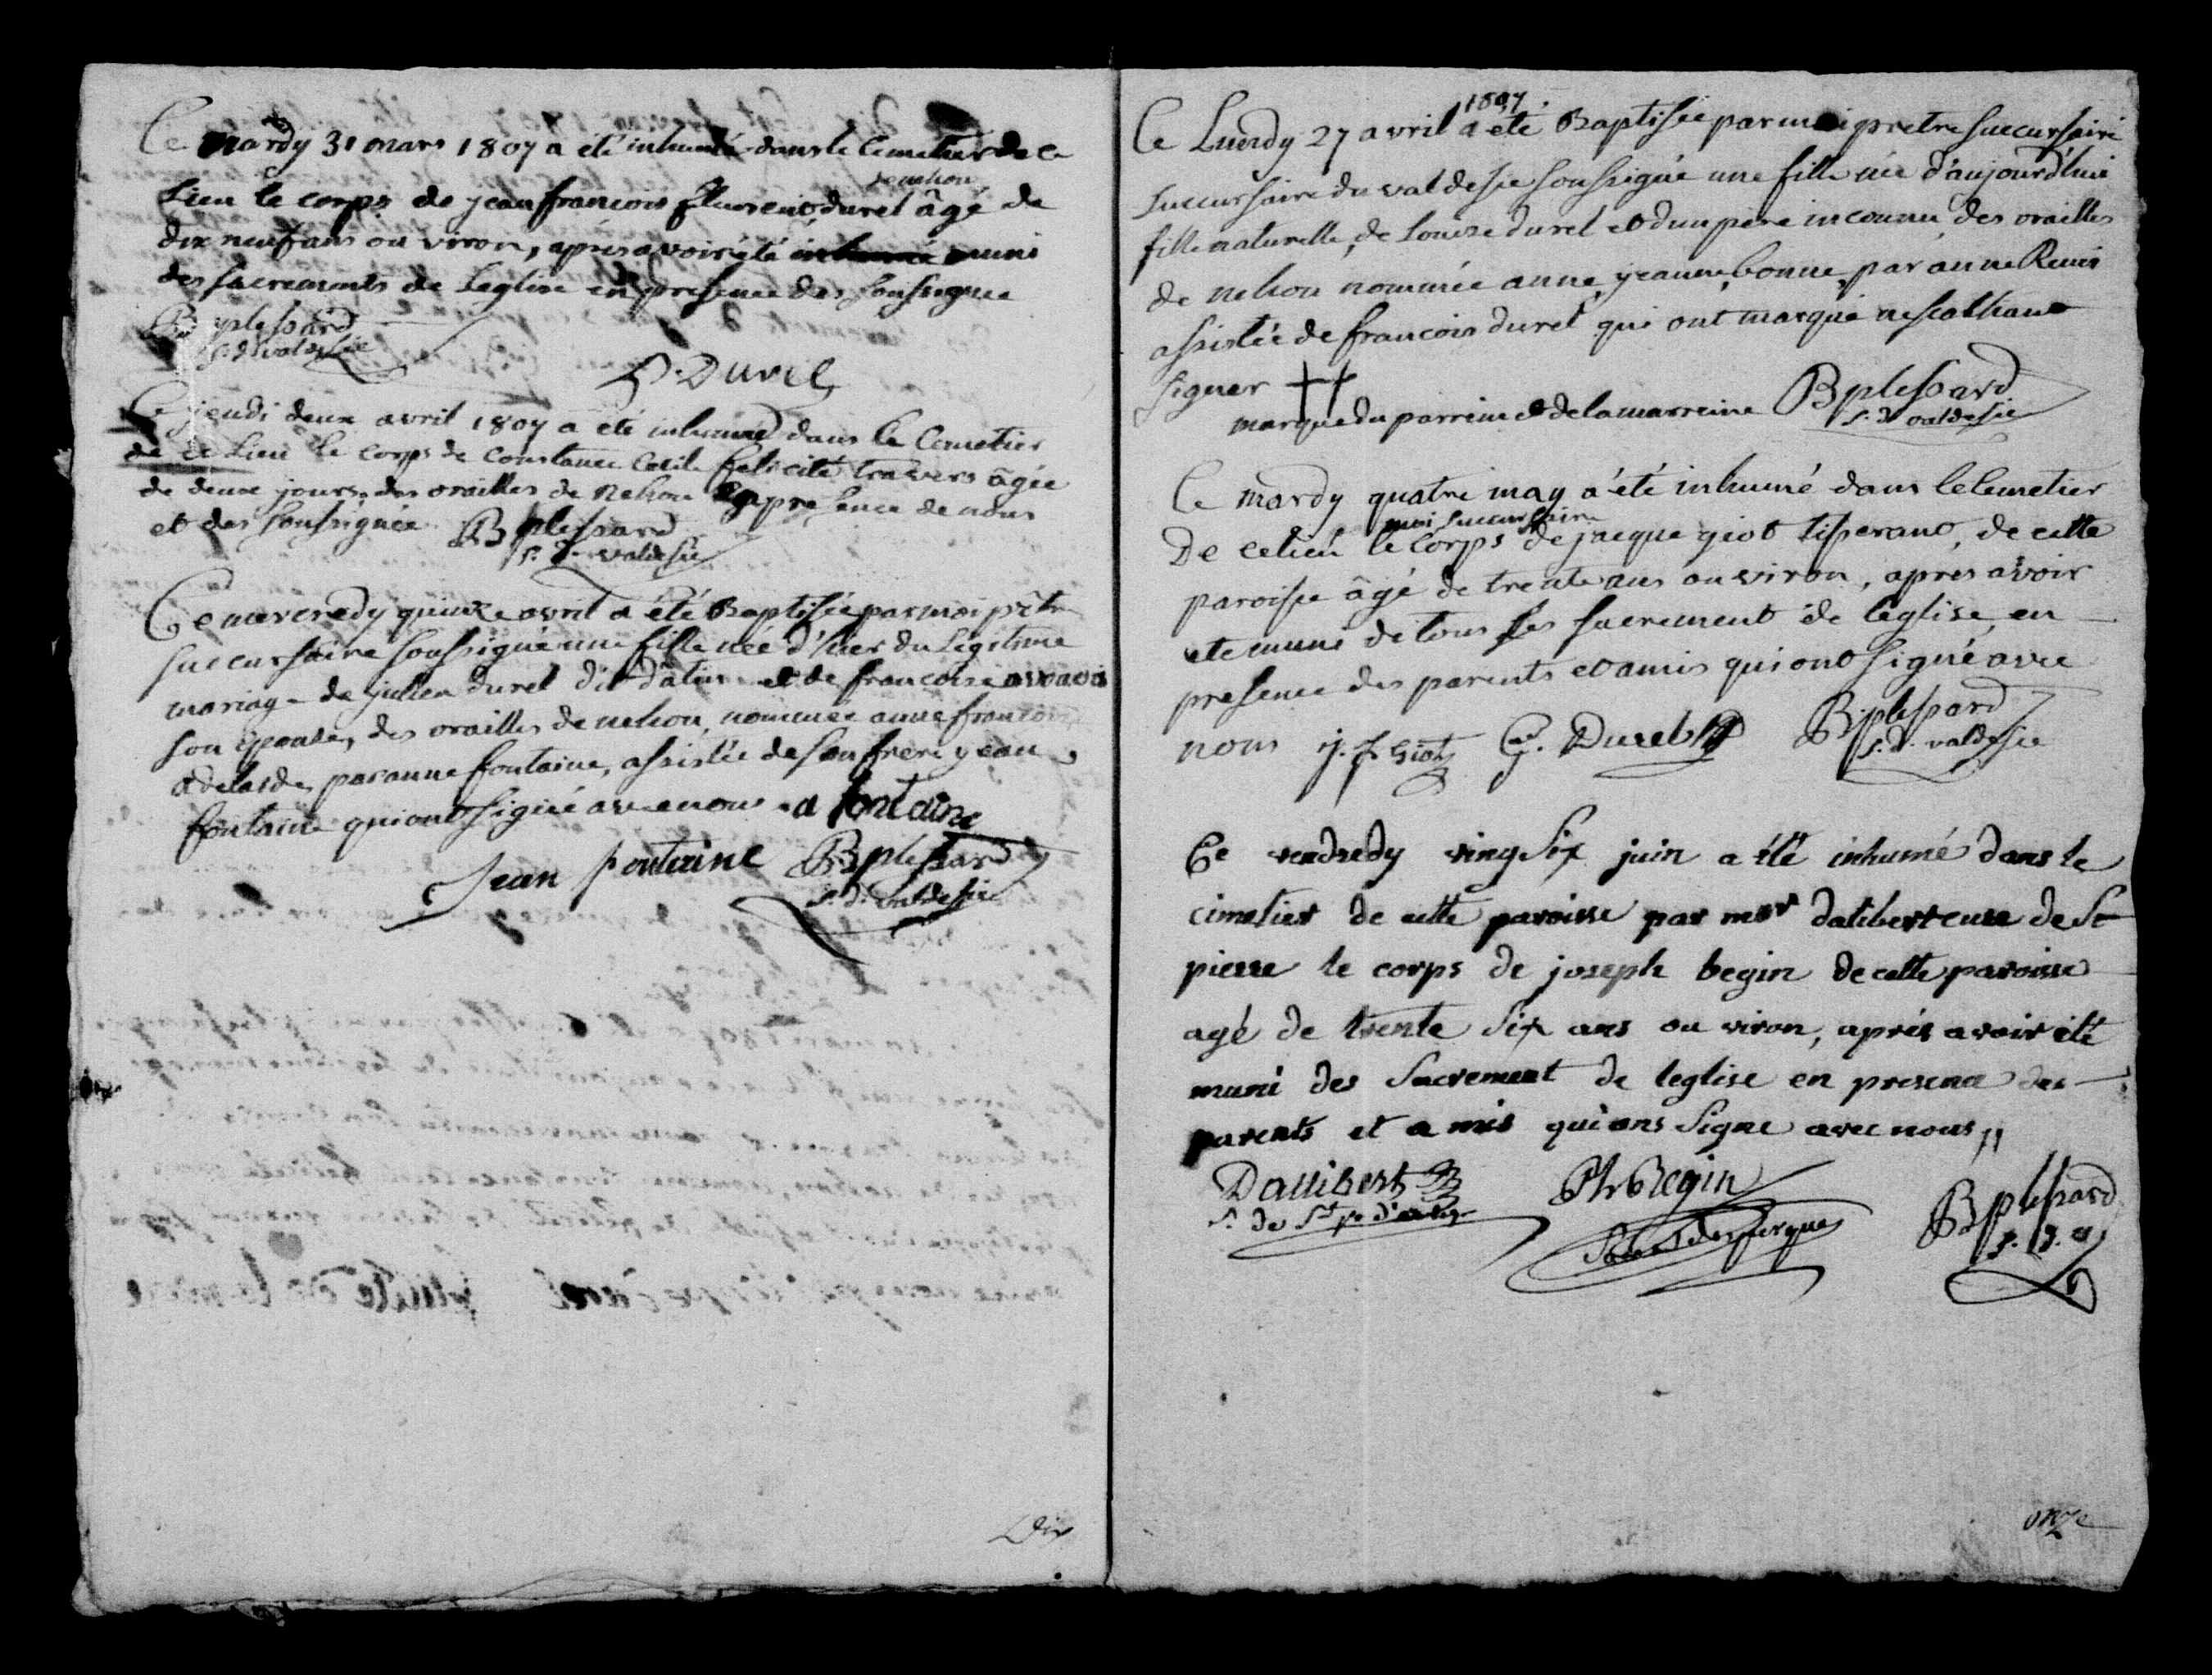 Ce Mardy 31 mars 1807 a été inhumé dans le Cemetier de ce
de nehou
Lieu le corps de jean françois fleurent, durel âgé de
dix neuf ans ou viron, après avoir été muni
des sacrements de Leglise en presence des soussignee
B plessard
s. d. valdesie
D. Durel
Ce jeudi deux avril 1807 a été inhumé dans le Cemetier
de ce Lieu le corps de Constance Cecile felicité travers âgée
de deux jours, des orailles de Nehou en presence de nous
et des soussignée B plessard
s. d. valdesie
Ce mercredy quinze avril a été Baptisée par moi pretre
succursaire soussigné une fille née d'hier du Legitime
mariage de julien durel dit dâtin et de francoise
son epouse, des orailles de nehou, nommée anne francoise
adelaide, par anne fontaine, assistée de son frere jean
fontaine qui ont signé avec nous a fontaine
Jean fontaine B plessard
s. d. valdesie
Dix
1807.
Ce Lundy 27 avril a été Baptisée par moi pretre succursaire
succursaire du valdesie soussigné une fille née d'aujourd'hui
fille naturelle, de Louise durel et d'un pere inconnu, des orailles
de nehou nommée anne, jeanne, bonne, par anne Renis
assistée de francois durel qui ont marqué ne scathant
signer ++
marque du parrein et de la marreine B plessard
s. d. valdesie
Ce mardy quatre may a été inhumé dans le Cemetier
moi succursaire
De ce lieu le corps de jacque giot tisserant, de cette
paroisse âgé de trente ans ou viron, apres avoir
ete muni de tous les sacrement de l'eglise, en
presence des parents et amis qui ont signé avec
nous j. f. Giot G. Durel B plessard
s. d. valdesie
Ce vendredy ving six juin a été inhumé dans le
cimetier de cette paroisse par msr dalibert cure de St
pierre le corps de joseph begin de cette paroisse
agé de trente six ans ou viron, après avoir été
muni des Sacrement de leglise en presence des
parents et amis qui ons Signe avec nous
Dallibert Ph Begin B plessard
s. de St pre d' s. d. v
onze